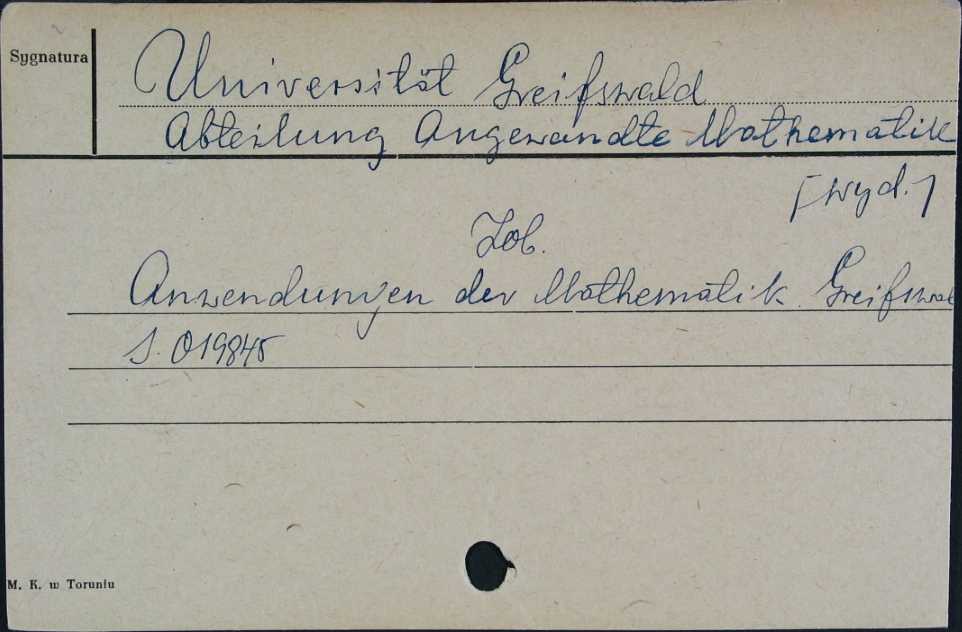 Sygnatura
Universität Greifswald
Abteilung Angewandte Mathematik
[wyd.]
Zob.
Anwendungen der Mathematik. Greifswal
S. 019845
M. K. w Toruniu